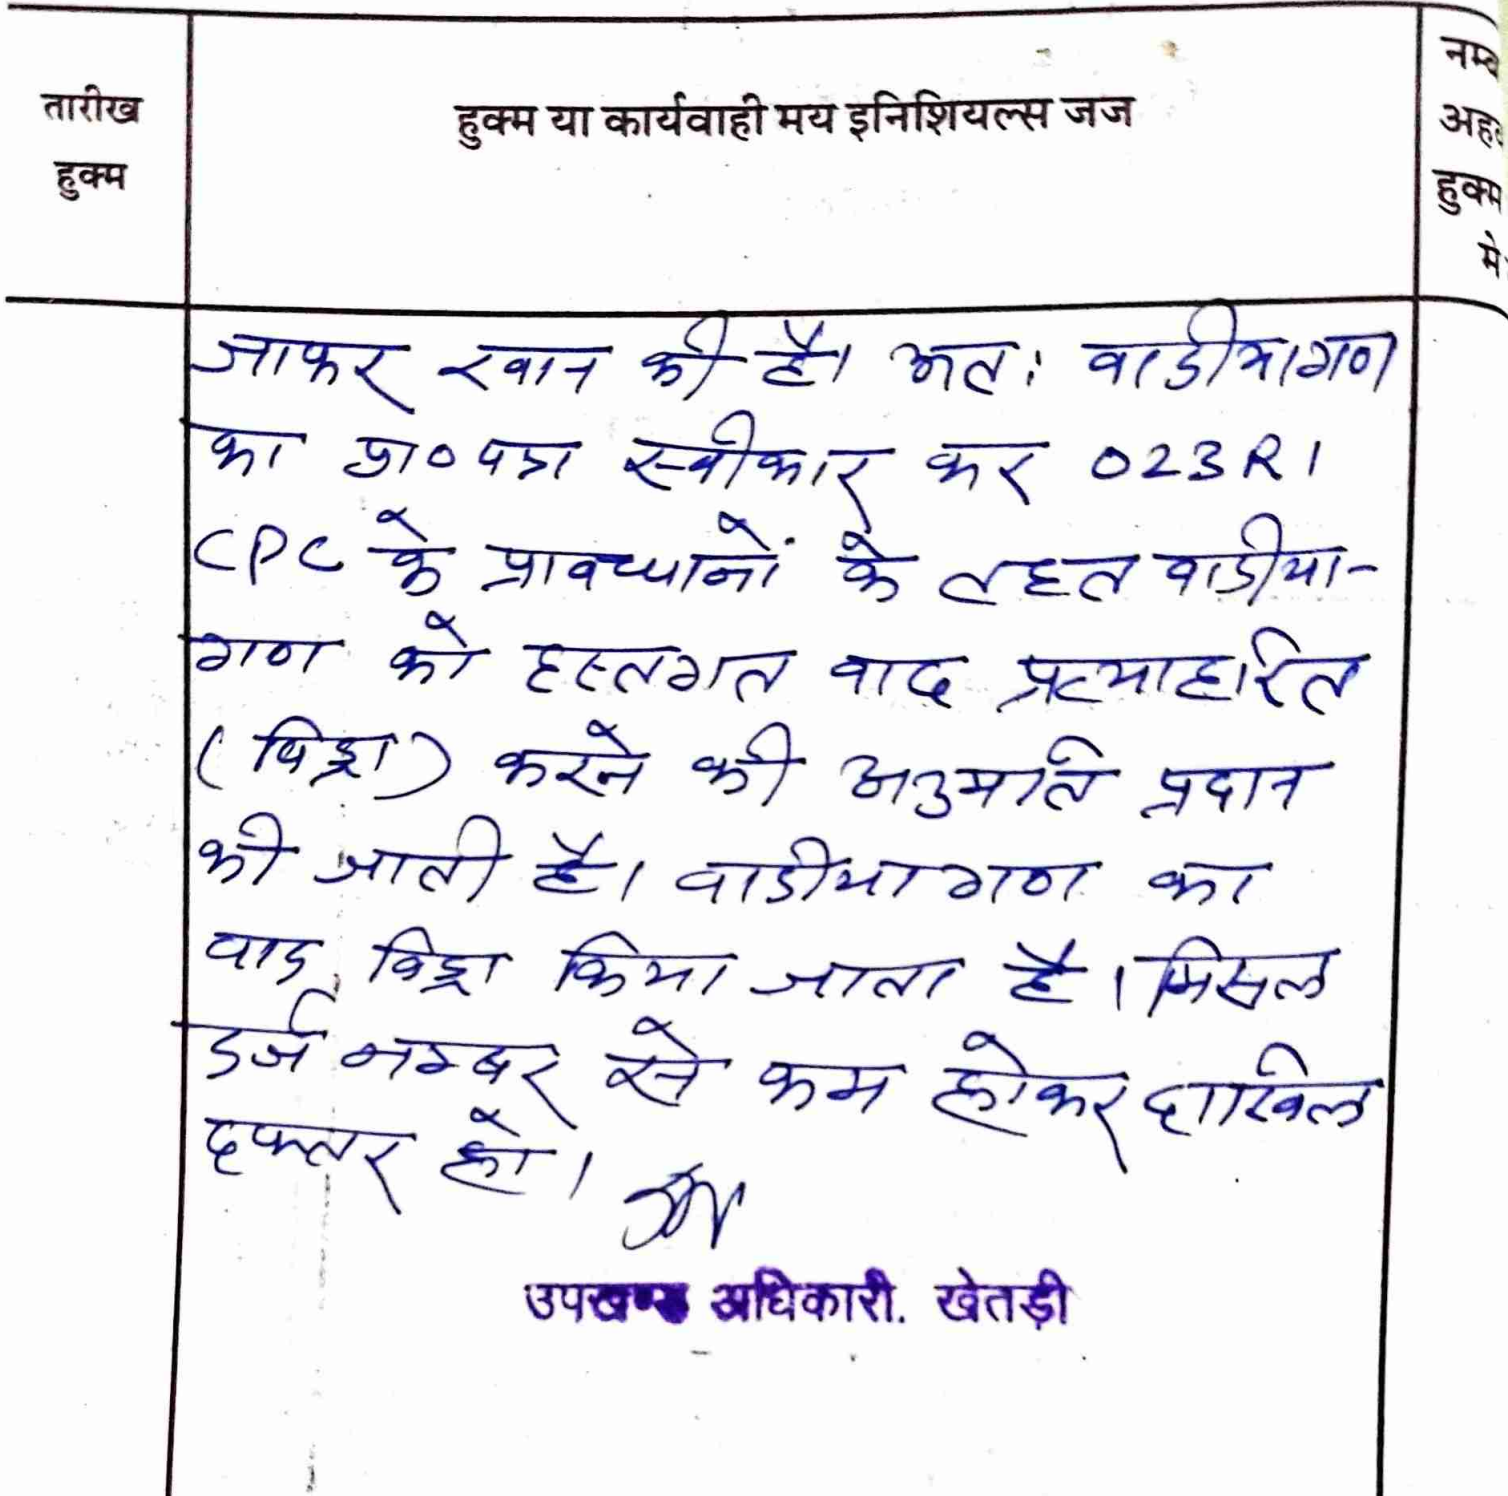 तारीख
हुक्म
हुक्म या कार्यवाही मय इनिशियल्स जज
नम्ब
अह
हुक्म
मे
जाफर खान की है। अतः वादीयागण
का प्रा० पत्र स्वीकार कर O23R1
CPC के प्रावधानों के तहत वादीया-
गण को हस्तगत वाद प्रत्याहरित
(विड्रा) करने की अनुमति प्रदान
की जाती है। वादीयागण का
वाद विड्रा किया जाता है। मिसल
दर्ज नम्बर से कम होकर दाखिल
दफ्तर हो।
उपखण्ड अधिकारी. खेतड़ी